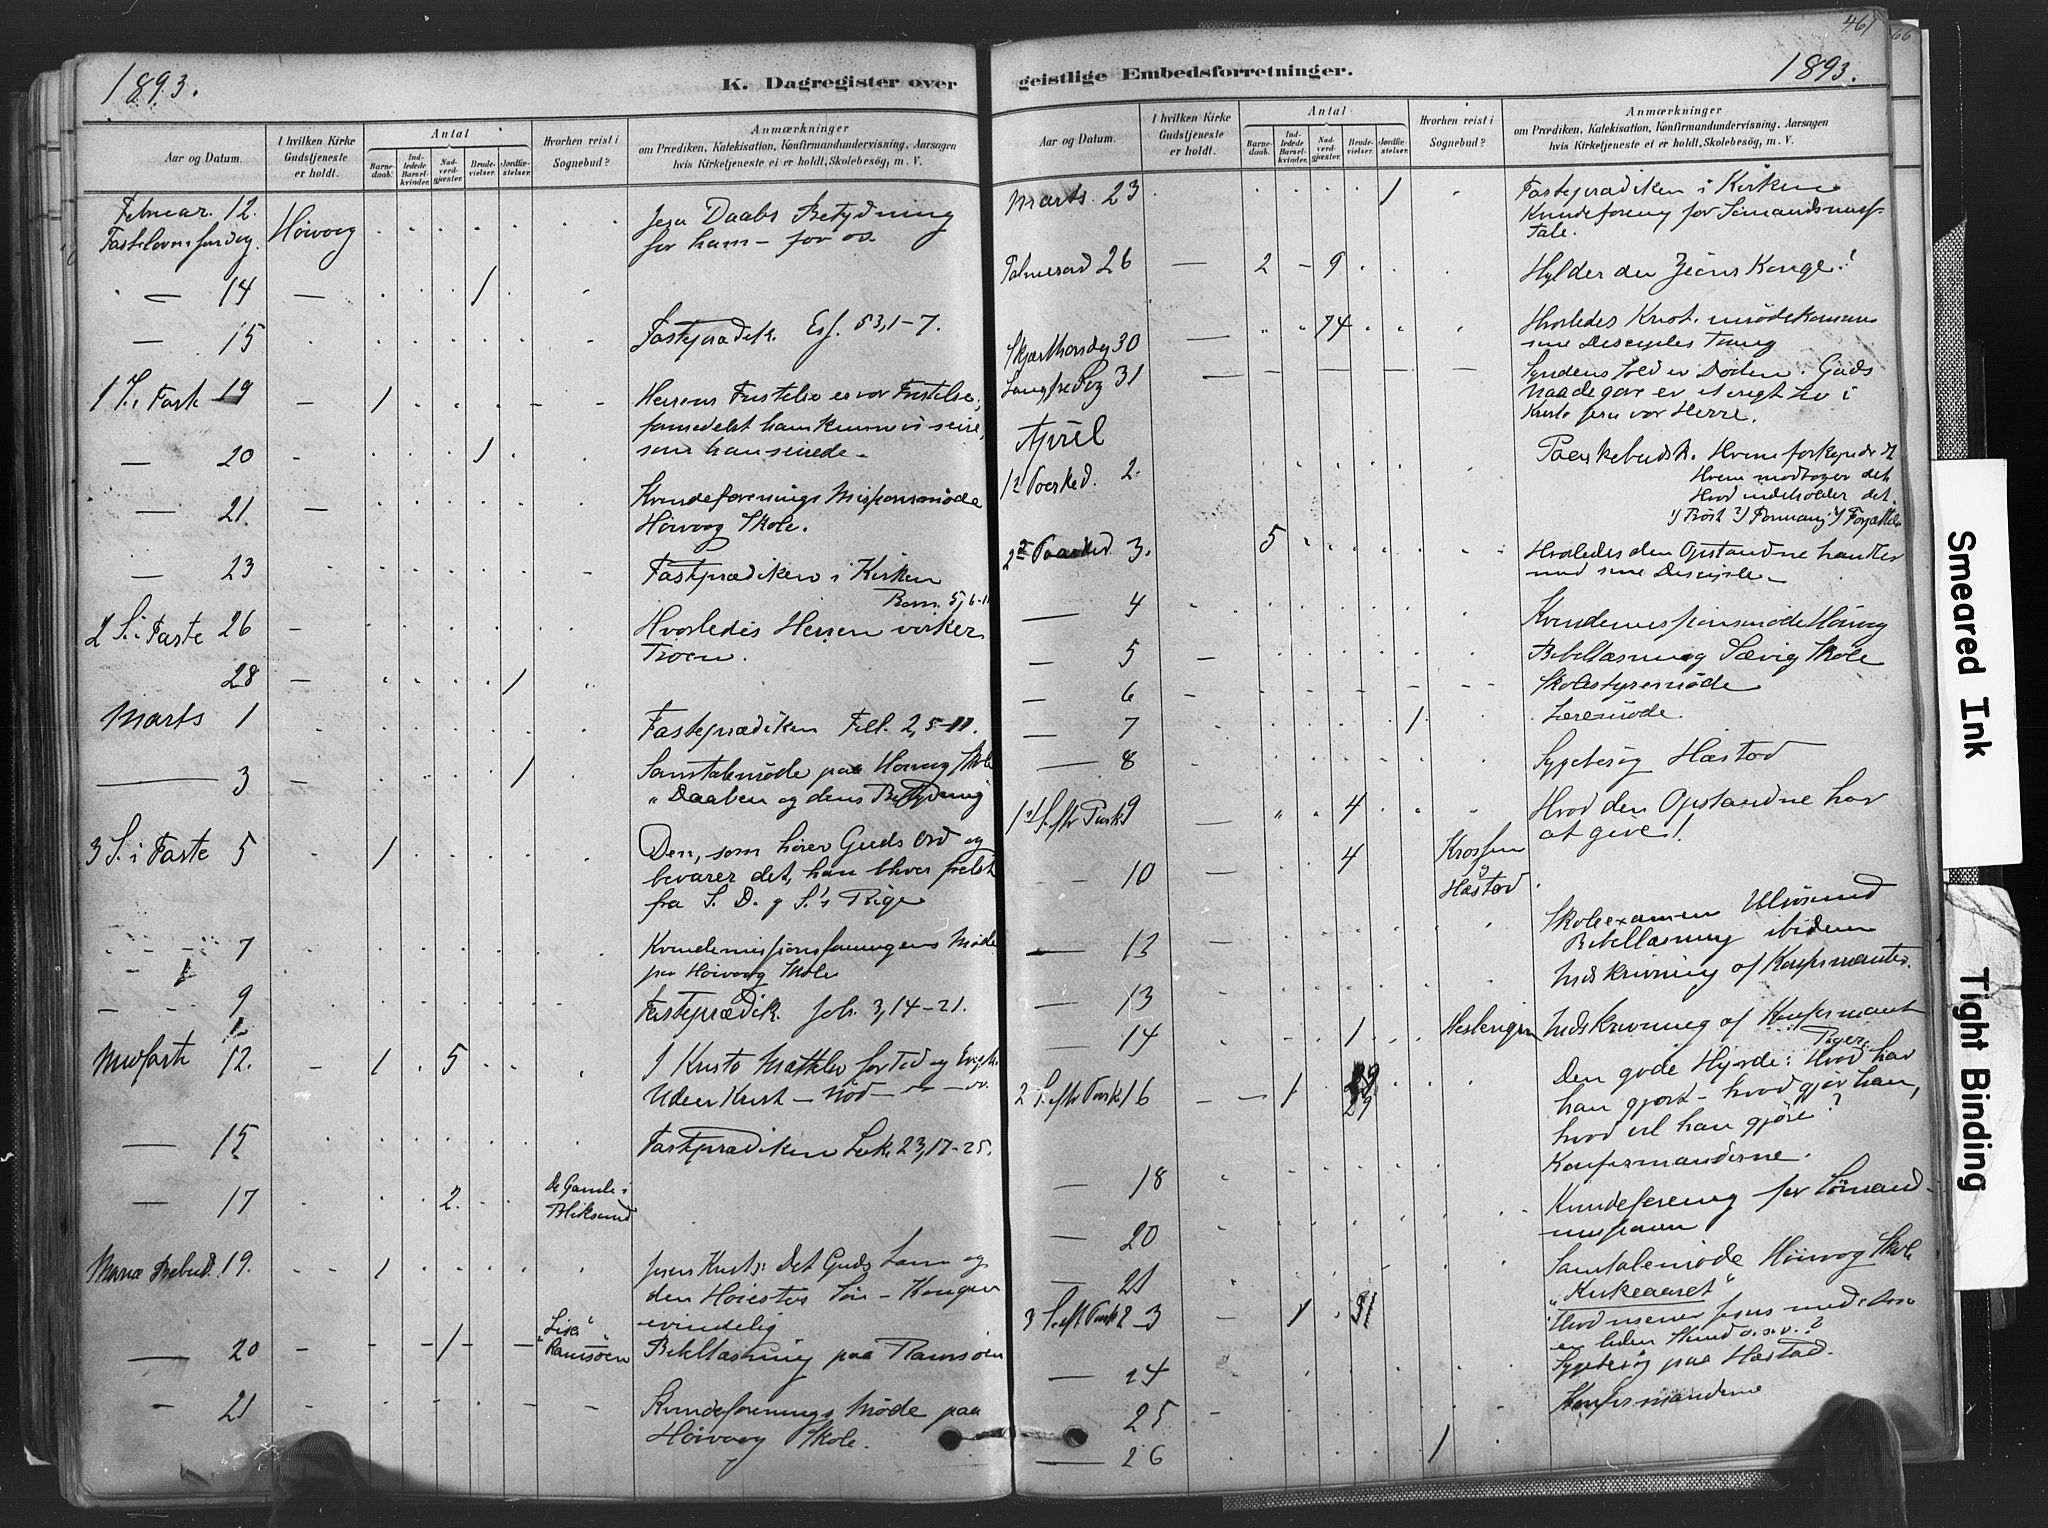 1893.
K. Dagregister over
Aar og Datum.
I hvilken Kirke Gudstjeneste er holdt.
Antal
Barnedaab.
Indledede Barselkvinder.
Nadverdgjæster.
Brudevielser.
Jordfæstelser.
Hvorhen reist i Sognebud?
Anmærkninger
om Prædiken, Katekisation, Konfirmandundervisning, Aarsagen
hvis Kirketjeneste ei er holdt, Skolebesög, m. V.
Februar. 12.
Fastelavnssøndag. Høivaag
Jesu Daabs Betydning
for ham – for os.
— 14 — 1
— 15
Fasteprædik. Esj. 53,1-7.
1 S. i Fast 19 – 1
Herrens Fristelse er vor Fristelse,
som han seirede.
— 20 - 1
— 21. —
Kvindeforenings Missionsmøde
Høivaag Skole.
— 23
Fasteprædiken i Kirken
Rom. 5, 6-11
2 S. i Faste 26 –
Hvorledes Herren virker
Troen.
28 — 1
Marts 1
Fasteprædiken Fill. 2, 5-11.
— 3 – 1
Samtalemøde paa Høivaag Skole
"Daaben og dens Betydning
3 S. i Faste 5 1
Den, som hører Guds Ord og
bevarer det, han bliver frelst
fra S. D. og S.'s Rige
7
Kvindemissionsforeningens Møde
paa Høivaag Skole
9
Fasteprædik. Joh. 3, 14-21.
Midfaste 12. – 1 5
I Kristo Mættelse for Tid og Evigh.
Uden Krist – Nød
— 15
Fasteprædiken Luk. 23, 17-25.
— 17 2.
De Gamle i
Bliksund
Mariæ Bebud. 19. 1
Jesus Krists: Det Guds Lam og
den Høiestes Søn – Kongen
evindelig
— 20 1
"Lisa"
Ramsøen
Bibellæsning paa Ramsøen
- 21
Kvindeforenings Møde paa
Høivaag Skole.
461
66
geistlige Embedsforretninger.
1893.
Aar og Datum.
I hvilken Kirke Gudstjeneste er holdt.
Antal
Barnedaab.
Indledede Barselkvinder.
Nadverdgjæster.
Brudevielser.
Jordfæstelser.
Hvorhen reist i Sognebud?
Anmærkninger
om Prædiken, Katekisation, Konfirmandundervisning, Aarsagen
hvis Kirketjeneste ei er holdt, Skolebesög, m. V.
Marts 23 1
Fasteprædiken i Kirken
Kvindeforening for
Palmesønd 26 — 2 – 9
Hylder du Zions Konge?
Skjærthorsdag 30 — 74
Hvorledes Krist. imødekommer
sine Disciples Trang
Langfredag 31 —
Syndens Sold er Døden. Guds
Naadegave er et evigt Liv i
Kristo Jesu vor Herre.
April
1ste Paasked. 2.
Paaskebudsk. Hvem forkynder d
Hvem modtager det
Hvad indeholder det.
1) Trøst 2) Formaning 3) Forjættelse
2den Paasked 3. 5
Hvorledes den Opstandne handler
med sine Disciple –
— 4
Kvindemissionsmøde Høivaag
— 5 –
Bibellæsning Sævig Skole
— 6 –
Skolestyremøde
— 7 1
Læremøde
— 8
Sygebesøg Hæstad
1ste S. eftr Paask 9 — 4
Hvad den Opstandne har
at give!
10 4
Hæstad
— 13
Skoleexamen Ulvøsund
Bibellæsning ibidem
— 13
Indskrivning af Konfirmanter.
— 14 1
Indskrivning af Konfirmant
Piger
2 S. eftr Paask 16 1 29
Den gode Hyrde: Hvad har
han gjort – hvad gjør han,
hvad vil han gjøre?
— 18
Konfirmanderne.
— 20
Kvindeforening for Sømandsmissionen
— 21
Samtalemøde Høivaag Skole
"Kirkeaaret"
3 S. eft. Paask 23 1 31
Hvad mener Jesus med:
en liden Stund o. s. v.?
— 24
Sygebesøg paa Hæstad.
25
Konfirmanderne
— 26 1
Smeared Ink
Tight Binding